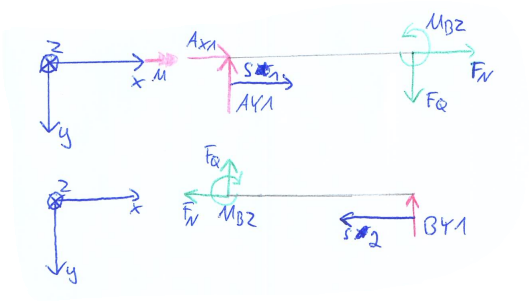 Z
x
y
M
AX1
S1
AY1
MBZ
FN
FQ
Z
x
y
FQ
FN
MBZ
S2
BY1